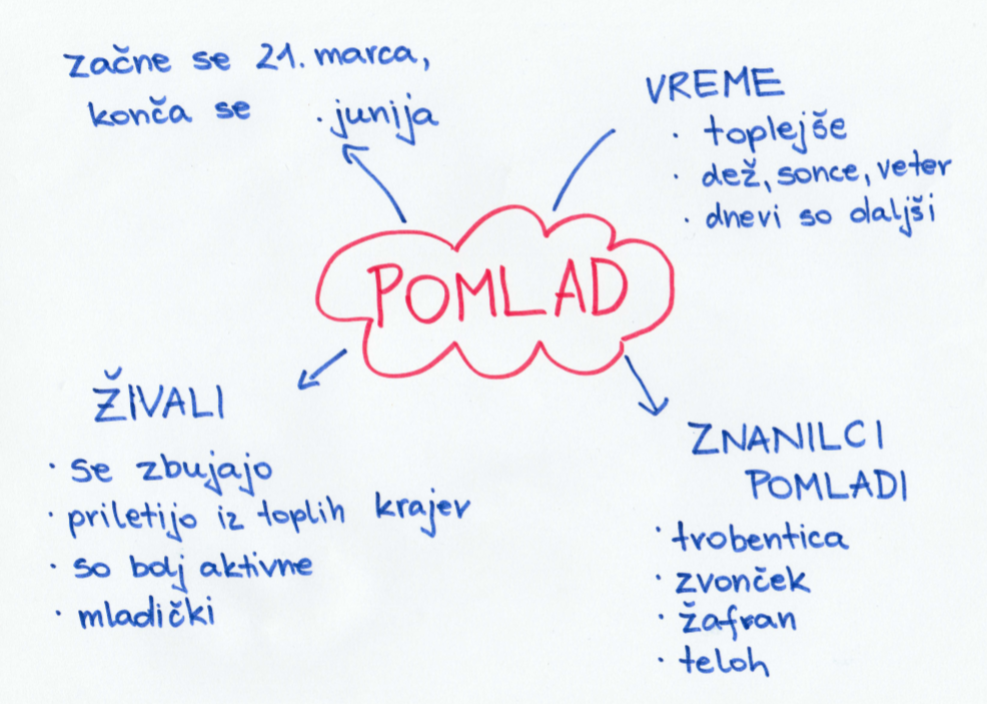 začne se 21. marca,
konča se . junija
VREME
· toplejše
· dež, sonce, veter
· dnevi so daljši
POMLAD
ŽIVALI
· se zbujajo
· priletijo iz toplih krajev
· so bolj aktivne
· mladički
ZNANILCI
POMLADI
· trobentica
· zvonček
· žafran
· teloh